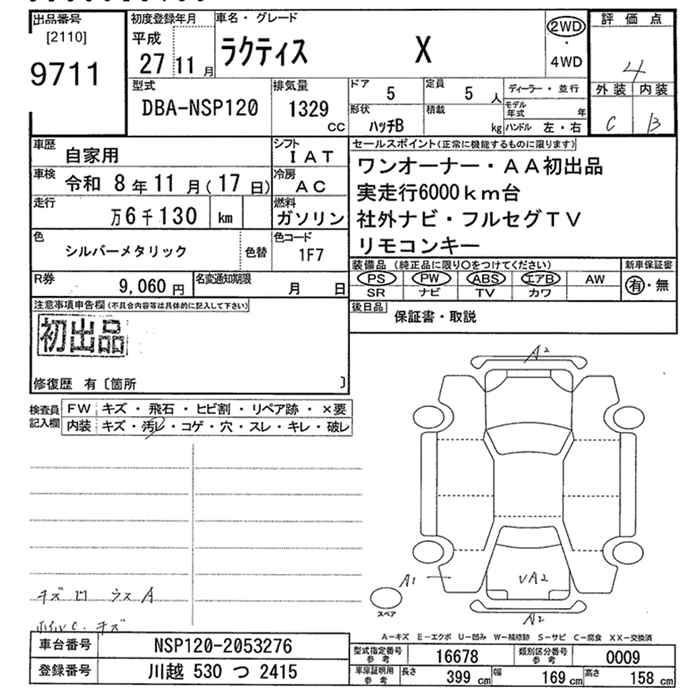 出品番号 初度登録年月 車名・グレード 2WD 評価点
[2110] 平成 ラクティス X ・ 4
9711 27 11月 4WD 外装 内装
型式 排気量 ドア 5 定員 5人 ディーラー・並行 C B
DBA-NSP120 1329cc 形状 ハッチB 積載 kg モデル年式 年
ハンドル 左・右
車歴 自家用 シフト IAT セールスポイント(正常に機能するものに限ります)
車検 令和 8年11月(17日) 冷房 AC ワンオーナー・AA初出品
走行 万6千130 km 燃料 ガソリン 実走行6000km台
色 シルバーメタリック 色替 色コード 1F7 社外ナビ・フルセグTV
リモコンキー
R券 9,060円 名変通知期限 月 日 装備品(純正品に限り〇をつけてください) 新車保証書
PS PW ABS エアB AW 有・無
SR ナビ TV カワ
注意事項申告欄(不具合内容等は具体的に記入して下さい) 後日品 保証書・取説
初出品
修復歴 有〔箇所 〕
検査員記入欄 FW キズ・飛石・ヒビ割・リペア跡・×要
内装 キズ・汚レ・コゲ・穴・スレ・キレ・破レ
A2
A1
VA2
A2
スペア
キズ凹 うスA
ホイルC、キズ
A-キズ E-エクボ U-凹み W-補修跡 S-サビ C-腐食 XX-交換済
車台番号 NSP120-2053276 型式指定番号 参考 16678 類別区分番号 参考 0009
登録番号 川越 530 つ 2415 車庫証明用 参考 長さ 399cm 幅 169cm 高さ 158cm